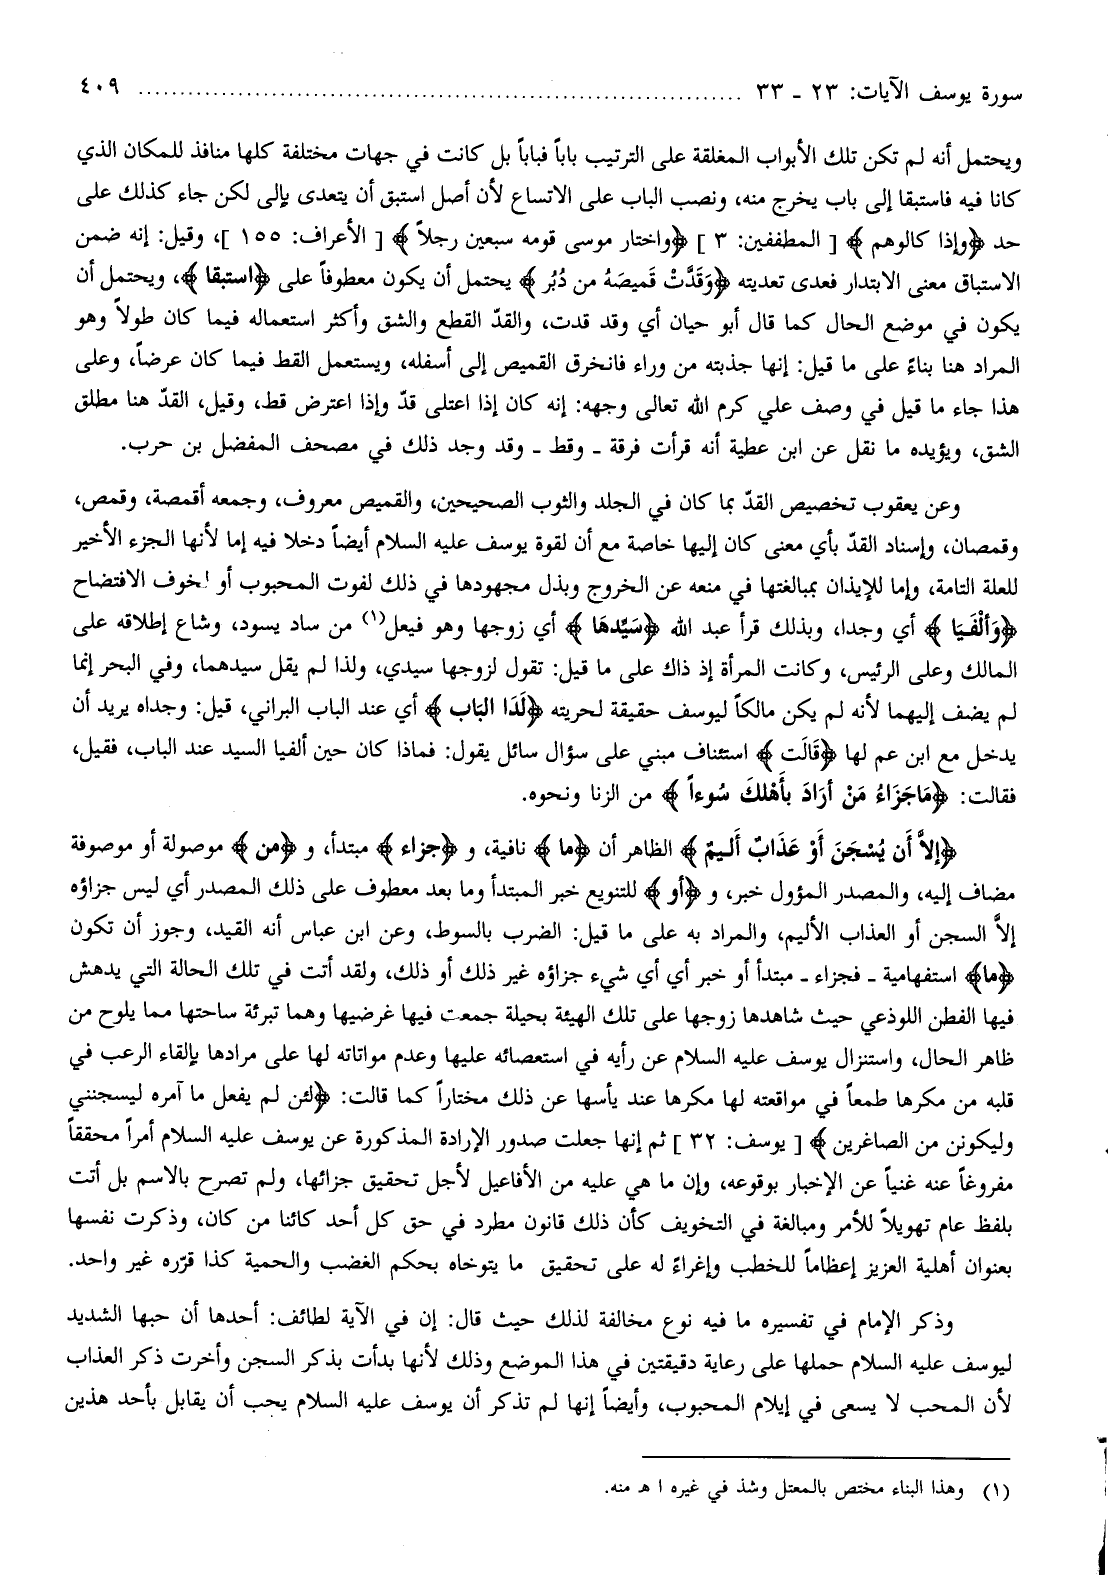 سورة يوسف الآيات: ٢٣ ـ ٣٣ ........................................................................ ٤٠٩
ويحتمل أنه لم تكن تلك الأبواب المغلقة على الترتيب باباً فباباً بل كانت في جهات مختلفة كلها منافذ للمكان الذي
كانا فيه فاستبقا إلى باب يخرج منه، ونصب الباب على الاتساع لأن أصل استبق أن يتعدى بإلى لكن جاء كذلك على
حد ﴿وإذا كالوهم﴾ [ المطففين: ٣ ] ﴿واختار موسى قومه سبعين رجلاً﴾ [ الأعراف: ١٥٥ ]، وقيل: إنه ضمن
الاستباق معنى الابتدار فعدى تعديته ﴿وَقَدَّتْ قَميصَهُ من دُبُر﴾ يحتمل أن يكون معطوفاً على ﴿استبقا﴾، ويحتمل أن
يكون في موضع الحال كما قال أبو حيان أي وقد قدت، والقدّ القطع والشق وأكثر استعماله فيما كان طولاً وهو
المراد هنا بناءً على ما قيل: إنها جذبته من وراء فانخرق القميص إلى أسفله، ويستعمل القط فيما كان عرضاً، وعلى
هذا جاء ما قيل في وصف علي كرم الله تعالى وجهه: إنه كان إذا اعتلى قدّ وإذا اعترض قط، وقيل، القدّ هنا مطلق
الشق، ويؤيده ما نقل عن ابن عطية أنه قرأت فرقة ـ وقط ـ وقد وجد ذلك في مصحف المفضل بن حرب.
وعن يعقوب تخصيص القدّ بما كان في الجلد والثوب الصحيحين، والقميص معروف، وجمعه أقمصة، وقمص،
وقمصان، وإسناد القدّ بأي معنى كان إليها خاصة مع أن لقوة يوسف عليه السلام أيضاً دخلا فيه إما لأنها الجزء الأخير
للعلة التامة، وإما للإيذان بمبالغتها في منعه عن الخروج وبذل مجهودها في ذلك لفوت المحبوب أو لخوف الافتضاح
﴿وَأَلْفَيَا﴾ أي وجدا، وبذلك قرأ عبد الله ﴿سَيِّدهَا﴾ أي زوجها وهو فيعل(١) من ساد يسود، وشاع إطلاقه على
المالك وعلى الرئيس، وكانت المرأة إذ ذاك على ما قيل: تقول لزوجها سيدي، ولذا لم يقل سيدهما، وفي البحر إنما
لم يضف إليهما لأنه لم يكن مالكاً ليوسف حقيقة لحريته ﴿لَدَا البَاب﴾ أي عند الباب البراني، قيل: وجداه يريد أن
يدخل مع ابن عم لها ﴿قَالَت﴾ استئناف مبني على سؤال سائل يقول: فماذا كان حين ألفيا السيد عند الباب، فقيل،
فقالت: ﴿مَاجَزَاءُ مَنْ أرَادَ بأَهْلكَ سُوءاً﴾ من الزنا ونحوه.
﴿إلاَّ أَن يُسْجَنَ أوْ عَذَابٌ أَليمٌ﴾ الظاهر أن ﴿ما﴾ نافية، و ﴿جزاء﴾ مبتدأ، و ﴿من﴾ موصولة أو موصوفة
مضاف إليه، والمصدر المؤول خبر، و ﴿أو﴾ للتنويع خبر المبتدأ وما بعد معطوف على ذلك المصدر أي ليس جزاؤه
إلاَّ السجن أو العذاب الأليم، والمراد به على ما قيل: الضرب بالسوط، وعن ابن عباس أنه القيد، وجوز أن تكون
﴿ما﴾ استفهامية ـ فجزاء ـ مبتدأ أو خبر أي أي شيء جزاؤه غير ذلك أو ذلك، ولقد أتت في تلك الحالة التي يدهش
فيها الفطن اللوذعي حيث شاهدها زوجها على تلك الهيئة بحيلة جمعت فيها غرضيها وهما تبرئة ساحتها مما يلوح من
ظاهر الحال، واستنزال يوسف عليه السلام عن رأيه في استعصائه عليها وعدم مواتاته لها على مرادها بإلقاء الرعب في
قلبه من مكرها طمعاً في مواقعته لها مكرها عند يأسها عن ذلك مختاراً كما قالت: ﴿لئن لم يفعل ما آمره ليسجنني
وليكونن من الصاغرين﴾ [ يوسف: ٣٢ ] ثم إنها جعلت صدور الإرادة المذكورة عن يوسف عليه السلام أمراً محققاً
مفروغاً عنه غنياً عن الإخبار بوقوعه، وإن ما هي عليه من الأفاعيل لأجل تحقيق جزائها، ولم تصرح بالاسم بل أتت
بلفظ عام تهويلاً للأمر ومبالغة في التخويف كأن ذلك قانون مطرد في حق كل أحد كائنا من كان، وذكرت نفسها
بعنوان أهلية العزيز إعظاماً للخطب وإغراءً له على تحقيق ما يتوخاه بحكم الغضب والحمية كذا قرّره غير واحد.
وذكر الإمام في تفسيره ما فيه نوع مخالفة لذلك حيث قال: إن في الآية لطائف: أحدها أن حبها الشديد
ليوسف عليه السلام حملها على رعاية دقيقتين في هذا الموضع وذلك لأنها بدأت بذكر السجن وأخرت ذكر العذاب
لأن المحب لا يسعى في إيلام المحبوب، وأيضاً إنها لم تذكر أن يوسف عليه السلام يجب أن يقابل بأحد هذين
(١) وهذا البناء مختص بالمعتل وشذ في غيره ا هـ منه.